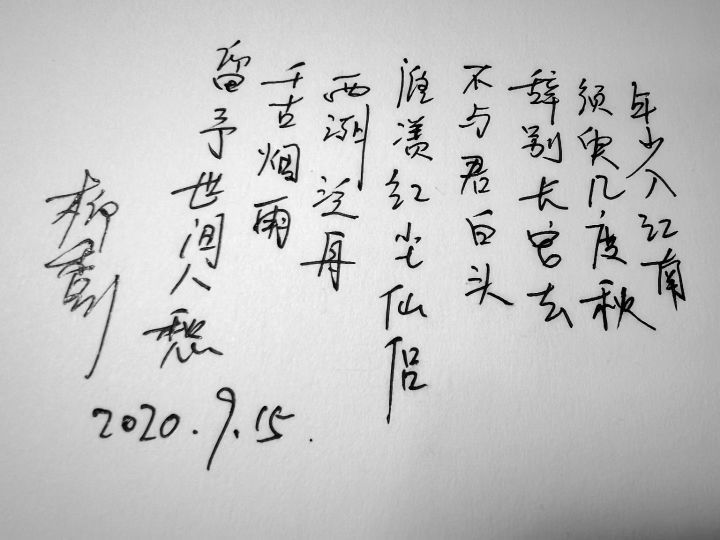 年少入江南
须臾几度秋
辞别长宫去
不与君白头
谁羡红尘仙侣
西湖泛舟
千古烟雨
留予世间人愁
柳
2020.9.15.